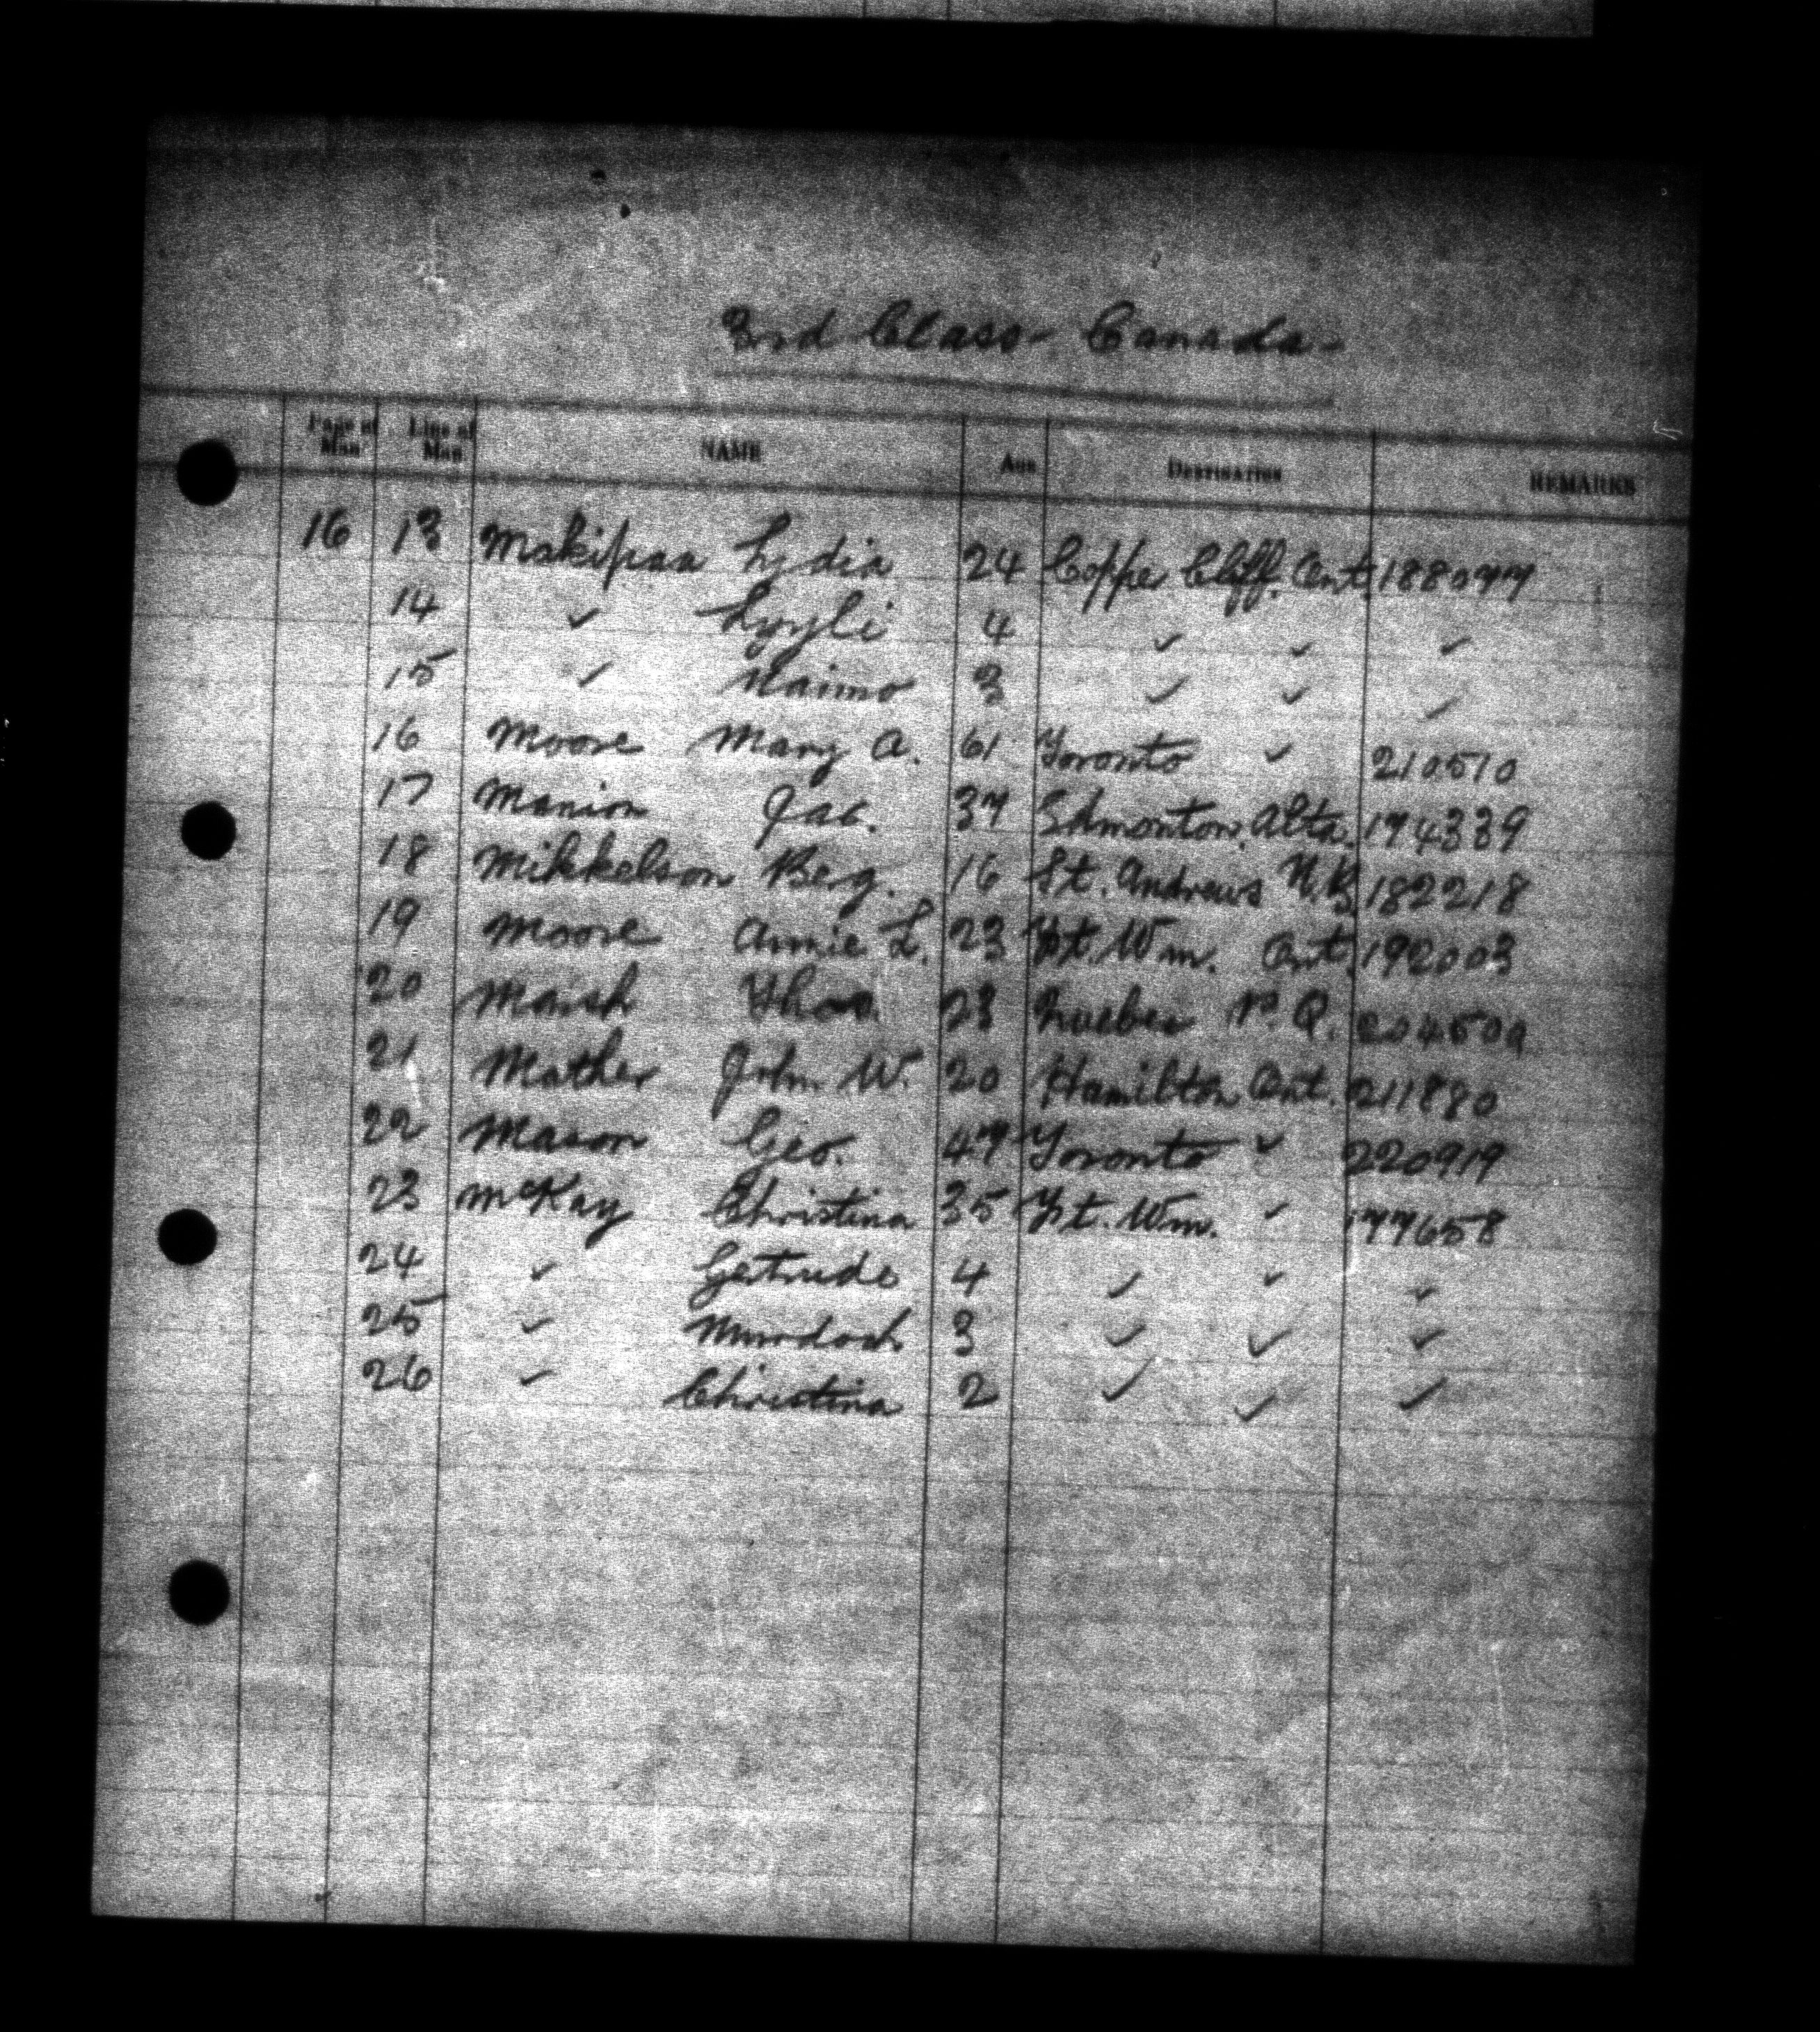 3rd Class - Canada -
Page of Man Line of Man NAME Age DESTINATION REMARKS
16 13 Makipaa Lydia 24 Coppe Cliff. Ont. 188077
14 ✓ Lyyli 4 ✓ ✓ ✓
15 ✓ Naimo 3 ✓ ✓ ✓
16 Moore Mary A. 61 Toronto ✓ 210510
17 Manion Jas. 37 Edmonton, Alta. 174339
18 Mikkelson Berg. 16 St. Andrews N.B. 182218
19 Moore Annie L. 23 Ft. Wm. Ont. 192003
20 Marsh Thos. 23 Quebec P.Q.
21 Mather John W. 20 Hamilton Ont. 211880
22 Mason Geo. 47 Toronto ✓ 220919
23 McKay Christina 35 Ft. Wm. ✓ 177658
24 ✓ Gertrude 4 ✓ ✓ ✓
25 ✓ Murdoch 3 ✓ ✓ ✓
26 ✓ Christina 2 ✓ ✓ ✓